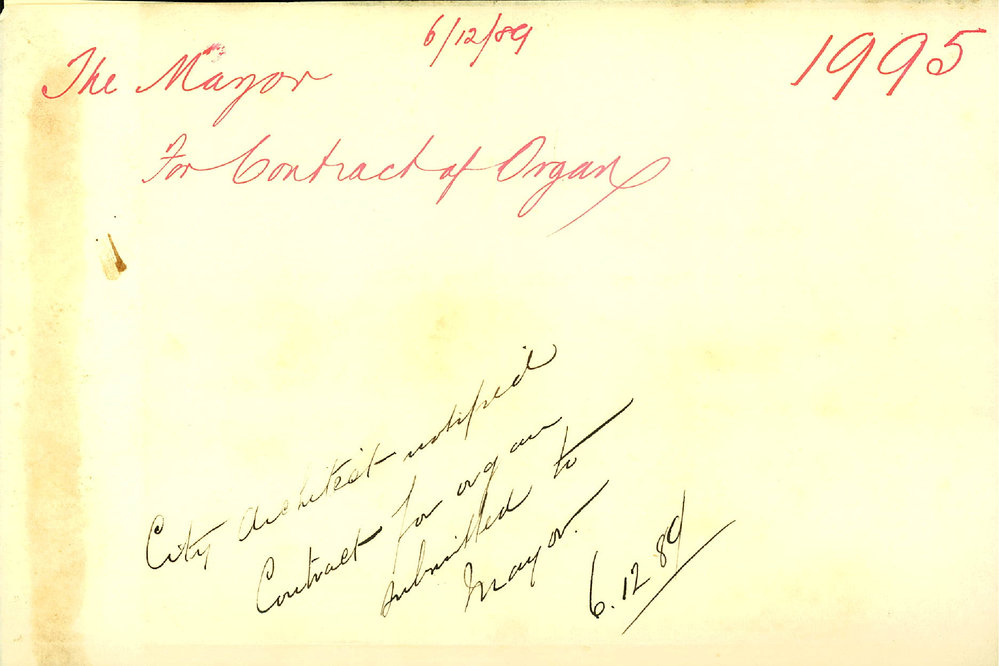 6/12/89
The Mayor
1995
For Contract of Organ
City Architect notified
Contract for organ
submitted to
Mayor.
6.12.89